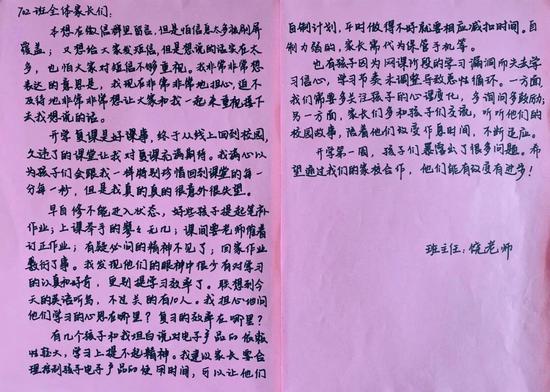 702班全体家长们:
本想在微信群里留言,但是怕信息太多被刷屏
覆盖;又想给大家发短信,但是想说的话实在太
多,也怕大家对短信不够重视。我非常非常想
表达的意思是,我现在非常非常地担心,迫不
及待地非常非常想让大家和我一起来重视接下
去我想说的话。
开学复课是好课事,终于从线上回到校园,
久违了的课堂让我对复课充满期待。我满心以
为孩子们会跟我一样特别珍惜回到课堂的每一
分每一秒,但是我真的真的很意外很失望。
早自修不能进入状态,好些孩子提起笔补
作业;上课举手的寥寥无几;课间要老师催着
订正作业;有疑必问的精神不见了;回家作业
敷衍了事。我发现他们的眼神中很少有对学习
的认真和好奇,更别提学习效率了。联想到今
天的英语听写,不过关的有10人。我担心地问
他们学习的心思在哪里?复习的效率在哪里?
有几个孩子和我坦白说对电子产品的依赖
性较大,学习上提不起精神。我建议家长要合
理控制孩子电子产品的使用时间,可以让他们
自制计划,平时做得不好就要相应减扣时间。自
制力弱的,家长需代为保管手机等。
也有孩子因为网课阶段的学习漏洞而失去学
习信心,学习节奏未调整导致恶性循环。一方面,
我们需要多关注孩子的心理变化,多询问多鼓励;
另一方面,家长们多和孩子们交谈,听听他们的
校园故事,陪着他们改变作息时间,不断适应。
开学第一周,孩子们暴露出了很多问题。希
望通过我们的家校合作,他们能有改变有进步!
班主任:饶老师